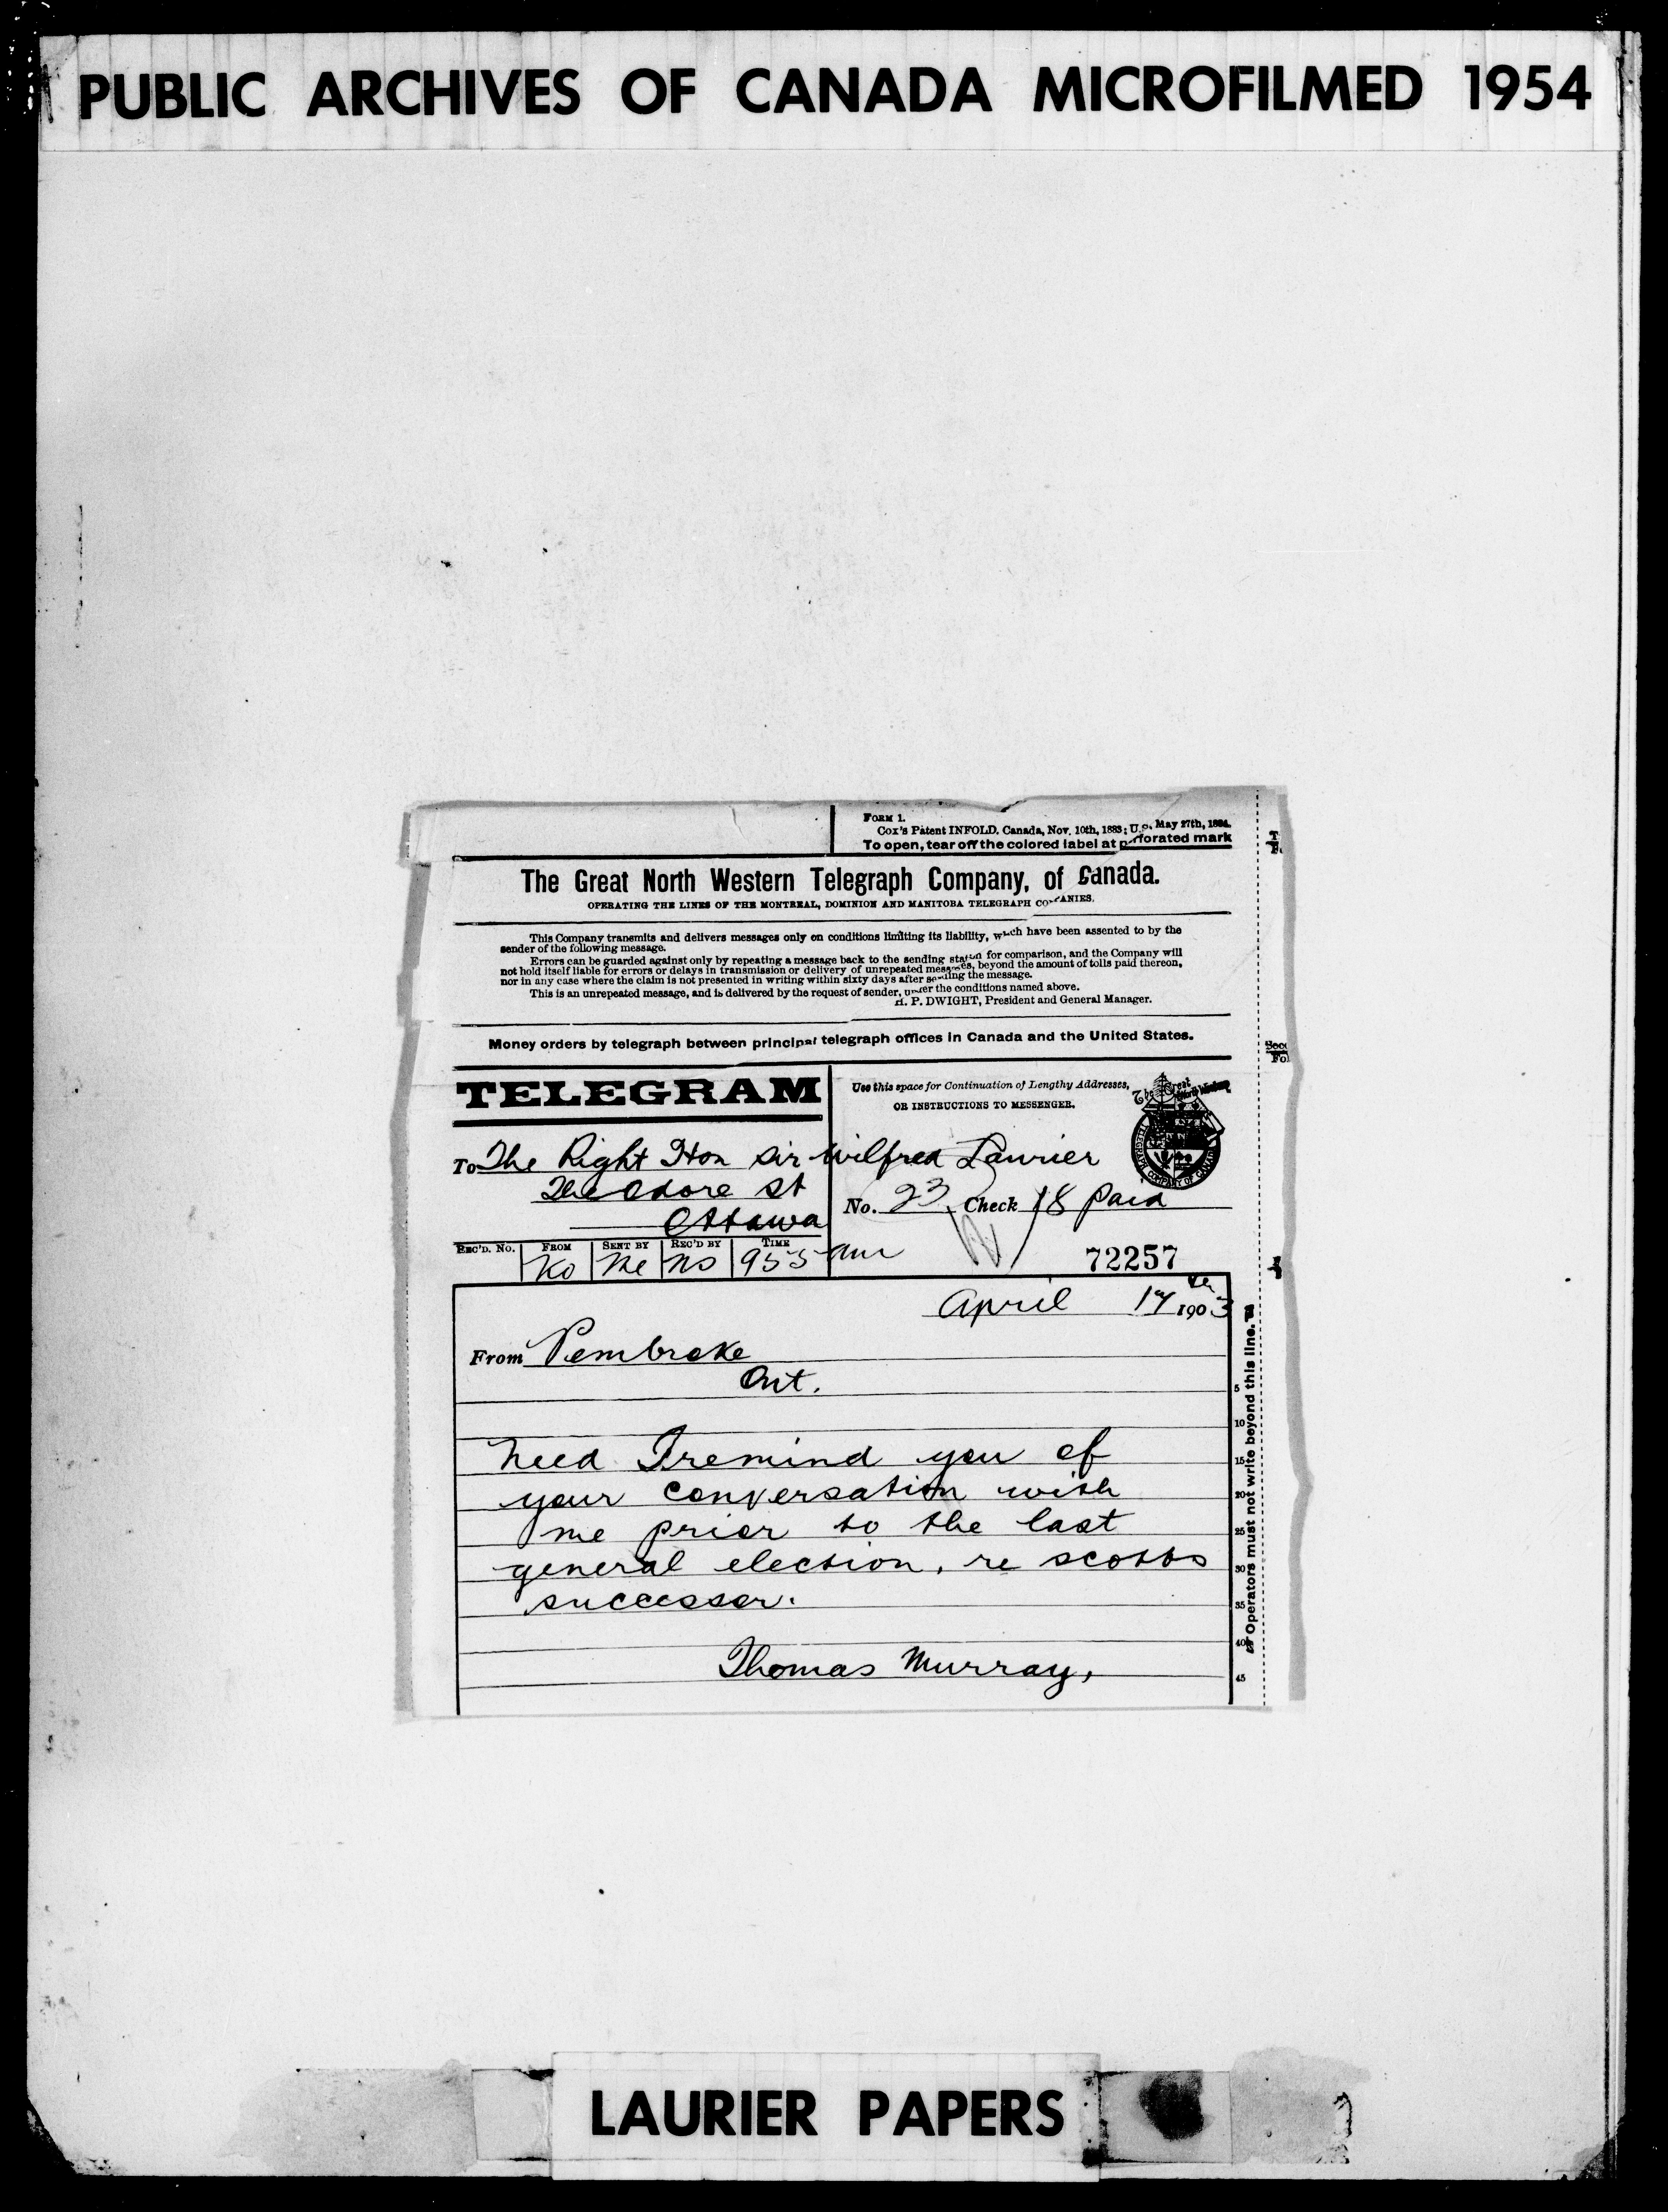 PUBLIC ARCHIVES OF CANADA MICROFILMED 1954
FORM 1.
Cox's Patent INFOLD. Canada, Nov. 10th, 1883; U.S. May 27th, 1884.
To open, tear off the colored label at perforated mark
The Great North Western Telegraph Company, of Canada.
OPERATING THE LINES OF THE MONTREAL, DOMINION AND MANITOBA TELEGRAPH COMPANIES.
This Company transmits and delivers messages only on conditions limiting its liability, which have been assented to by the
sender of the following message.
Errors can be guarded against only by repeating a message back to the sending station for comparison, and the Company will
not hold itself liable for errors or delays in transmission or delivery of unrepeated messages, beyond the amount of tolls paid thereon,
nor in any case where the claim is not presented in writing within sixty days after sending the message.
This is an unrepeated message, and is delivered by the request of sender, under the conditions named above.
H. P. DWIGHT, President and General Manager.
Money orders by telegraph between principal telegraph offices in Canada and the United States.
TELEGRAM
Use this space for Continuation of Lengthy Addresses,
OR INSTRUCTIONS TO MESSENGER.
The Great North Western
TELEGRAPH COMPANY OF CANADA
To The Right Hon Sir Wilfred Laurier
Theodore St
Ottawa
No. 23 Check 18 Paid
REC'D. NO. FROM SENT BY REC'D BY TIME
Ko Me No 955 am
72257
April 17th 1903
From Pembroke
Ont.
Need I remind you of
your conversation with
me prior to the last
general election, re scotts
successor.
Thomas Murray,
5
10
15
20
25
30
35
40
45
Operators must not write beyond this line.
LAURIER PAPERS